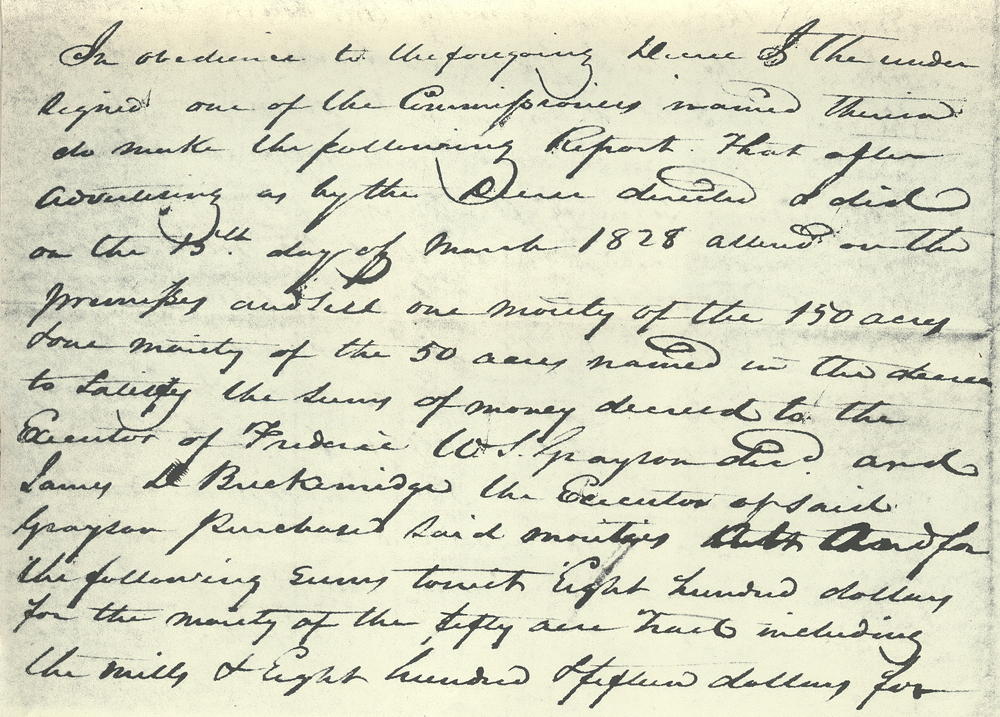 In obedience to the foregoing Decree I the under
signed one of the Commissioners named therein
do make the following Report. That after
advertising as by the Decree directed I did
on the 15th. day of March 1828 attend on the
premises and sell one moiety of the 150 acres
& one moiety of the 50 acres named in the decree
to Satisfy the sums of money decreed to the
Executor of Frederic W. S. Grayson decd. and
James D Breckinridge the Executor of said
Grayson purchased said moieties and for
the following sums towit Eight hundred dollars
for the moiety of the fifty acre Tract including
the mills & Eight hundred & fifteen dollars for